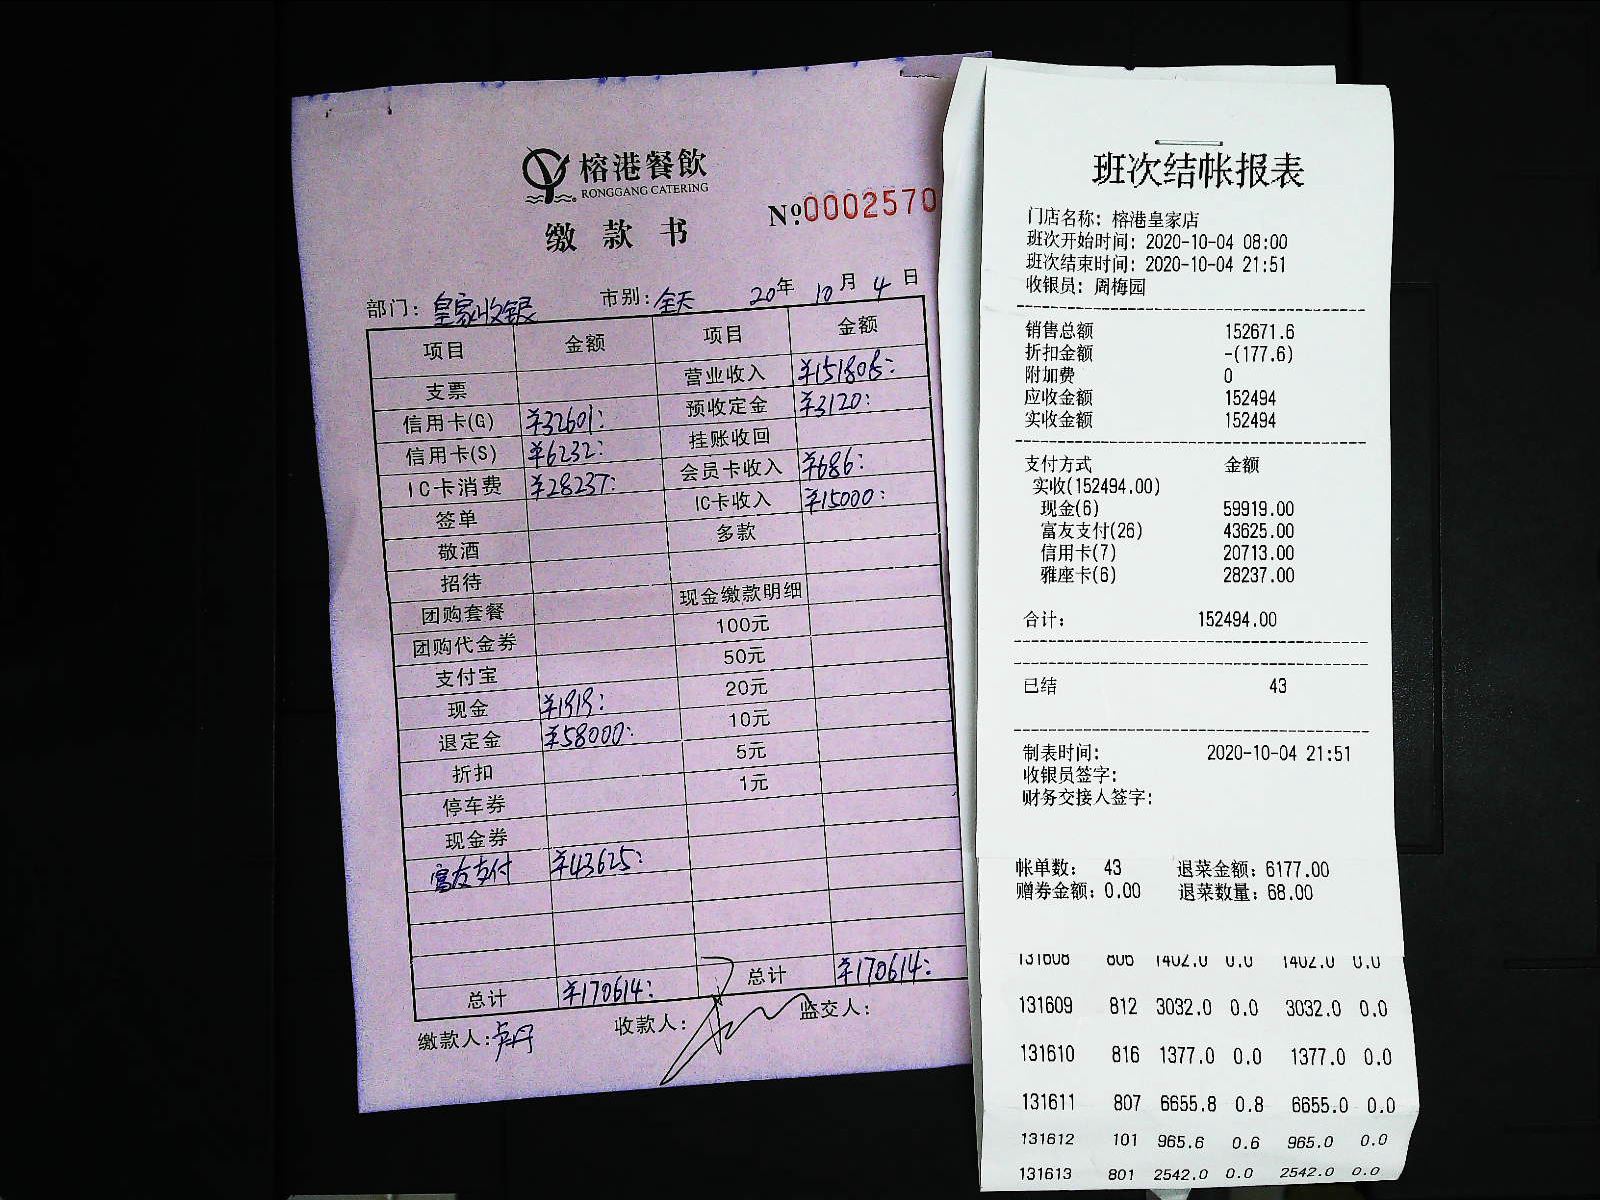 榕港餐飲
RONGGANG CATERING
缴款书
№0002570
部门：皇家收银 市别：全天 20年10月4日
项目 金额 项目 金额
支票 营业收入 ¥151808:
信用卡(G) ¥32601: 预收定金 ¥3120:
信用卡(S) ¥6232: 挂账收回
IC卡消费 ¥28237: 会员卡收入 ¥686:
签单 IC卡收入 ¥15000:
敬酒 多款
招待
团购套餐 现金缴款明细
团购代金券 100元
支付宝 50元
现金 ¥1919: 20元
退定金 ¥58000: 10元
折扣 5元
停车券 1元
现金券
富友支付 ¥43625:
总计 ¥170614: 总计 ¥170614:
缴款人：卢丹 收款人： 监交人：
班次结帐报表
门店名称：榕港皇家店
班次开始时间：2020-10-04 08:00
班次结束时间：2020-10-04 21:51
收银员：周梅园
销售总额 152671.6
折扣金额 -(177.6)
附加费 0
应收金额 152494
实收金额 152494
支付方式 金额
实收(152494.00)
现金(6) 59919.00
富友支付(26) 43625.00
信用卡(7) 20713.00
雅座卡(6) 28237.00
合计： 152494.00
已结 43
制表时间： 2020-10-04 21:51
收银员签字：
财务交接人签字：
帐单数： 43 退菜金额：6177.00
赠券金额：0.00 退菜数量：68.00
131608 806 1402.0 0.0 1402.0 0.0
131609 812 3032.0 0.0 3032.0 0.0
131610 816 1377.0 0.0 1377.0 0.0
131611 807 6655.8 0.8 6655.0 0.0
131612 101 965.6 0.6 965.0 0.0
131613 801 2542.0 0.0 2542.0 0.0